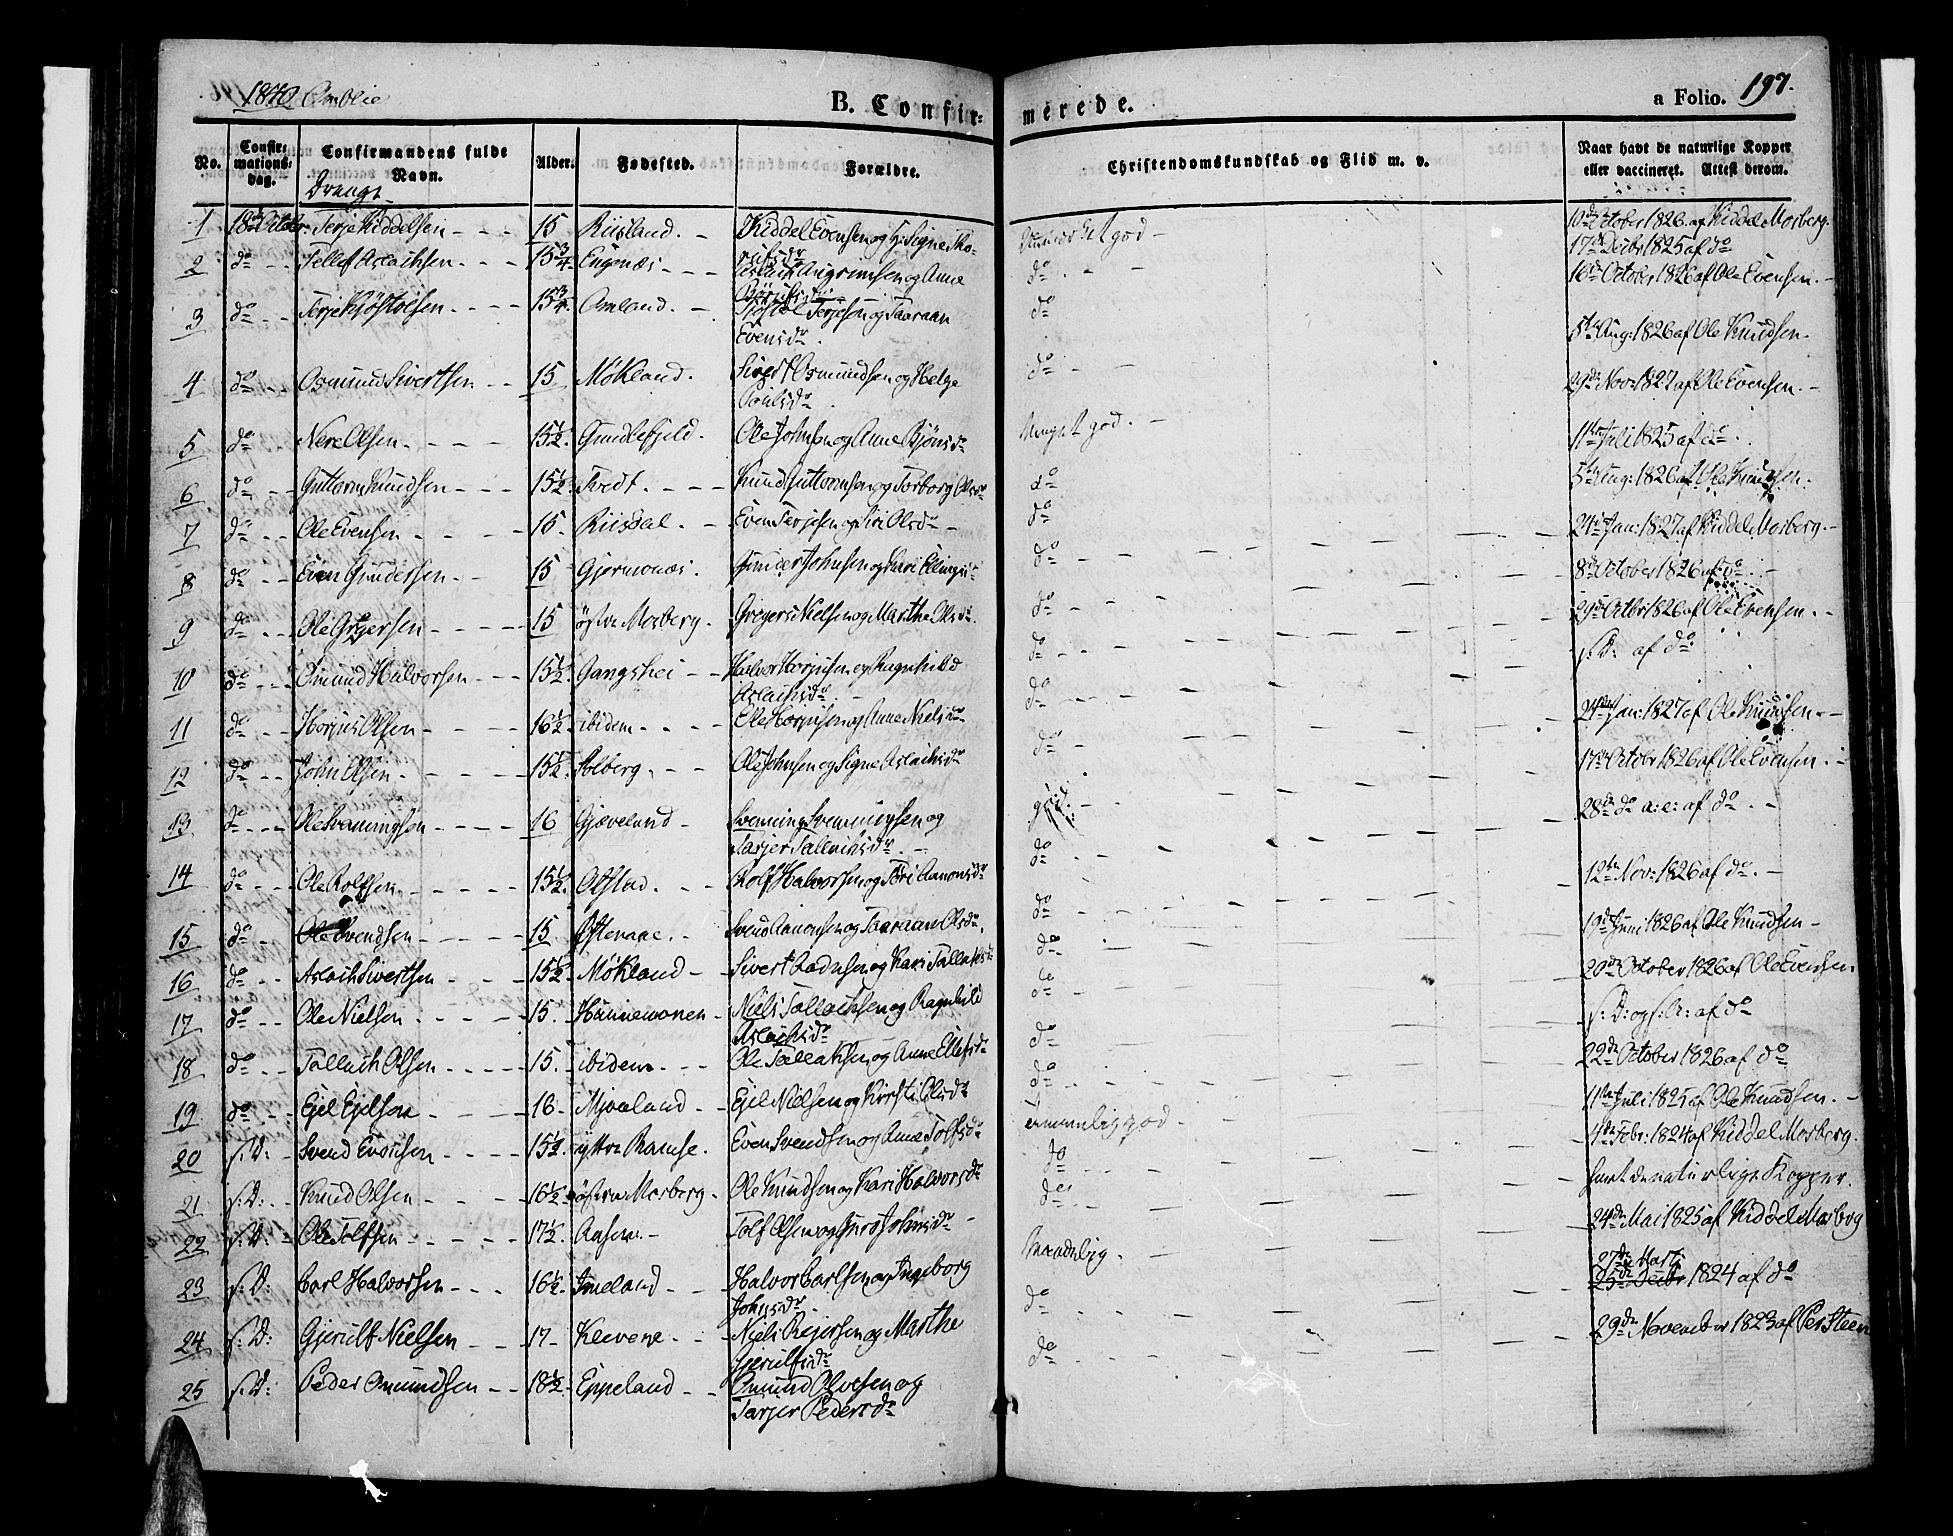 1840 Omblie
B. Confirmerede.
a Folio. 197.
No. Confirmations-dag. Confirmandens fulde Navn. Alder. Fødested. Forældre. Christendomskundskab og Flid m. v. Naar havt de naturlige Kopper eller vaccineret. Attest derom.
Drenge
1 18de October Terje Kiddelsen 15 Riisland. Kiddel Evensen og H: Signe god 10de October 1826 af Kiddel Morberg.
2 do Tellef Aslachsen 15 3/4 Engenæs Aslach Angrimsen og Anne do 17de Decbr 1825 af do
3 do Terje Kjøstolsen 15 3/4 Omland. Kjøstol Terjesen og Taaraan Evensdr. do 16de October 1826 af Ole Evensen.
4 do Osmund Sivertsen 15 Møkland. Sivert Osmundsen og Helge do 5te Aug: 1826 af Ole Knudsen.
5 do Nere Olsen 15 1/2 Gundlefjeld. Ole Johnsen og Anne Bjønsdr Meget god. 29de Nov: 1827 af Ole Evensen.
6 do Guttorm Knudsen 15 1/2 Tvedt. Knud Guttormsen og Torborg Olsdr do 11te Juli 1825 af do.
7 do Ole Evensen 15 Riisdal. Even Terjesen og Siri Olsdr do 5te Aug: 1826 af Ole Knudsen.
8 do Even Gundersen 15 Gjermonæs. Gunder Johnsen og Kari Ellingsdr do 24de Jan: 1827 af Kiddel Morberg.
9 do Ole Gregersen 15 østre Morberg. Gregers Nielsen og Marthe Olsdr. do 8de October 1826 af do
10 do Omund Halvorsen 15 1/2 Gangshei Halvor Horjusen og Ragnhild Aslachsdr do 29de Octbr 1826 af Ole Evensen.
11 do Horjus Olsen 16 1/2 ibidem Ole Horjusen og Anne Nielsdr do s: D: af do
12 do John Olsen 15 1/2 Solberg. Ole Johnsen og Signe Aslachsdr do 24de Jan: 1827 af Ole Knudsen.
13 do Ole Svenningsen 16 Gjæveland Svenning Svenningsen og Tarjer Tallachsdr. god. 17de Octobr 1826 af Ole Evensen.
14 do Ole Rolfsen 15 1/2 Olstad. Rolf Halvorsen og Siri Aanonsdr do 28de do a: c: af do
15 do Ole Svendsen 15 Svend Aanonsen og Taaraan Olsdr. do 12te Nov: 1826 af do.
16 do Aslach Sivertsen 15 1/2 Møkland Sivert og Kari Tallaksdr do 19de Juni 1826 af Ole Knudsen
17 do Ole Nielsen 15. Hannemonen Niels Tallachsen og Ragnhild Aslachsdr do 20de October 1826 af Ole Evensen
18 do Tallach Olsen 15. ibidem Ole Tallaksen og Anne Ellefsdr do s: D: og s: A: af do
19 do Ejel Ejelsen 16 Mjaaland Ejel Nielsen og Kirsti Olsdr do 22de October 1826 af do
20 s: D: Svend Evensen 15 1/2 yttre Ramse. Even Svendsen og Anne Tolfsdr temmelig god 11te Juli 1825 af Ole Knudsen.
21 s: D: Knud Olsen 16 1/2 østre Morberg Ole Knudsen og Kari Halvorsdr do 4de Febr: 1824 af Kiddel Morberg.
22 s: D: Ole Tolfsen 17 1/2 Tolf Olsen og Guro Johnsdr do havt de naturlige Kopper.
23 s: D: Carl Halvorsen 16 1/2 Imeland Halvor Carlsen og Ingeborg Johnsdr. maadelig. 24de Mai 1825 af Kiddel Morberg
24 s: D: Gjerulf Nielsen 17 Kleveve Niels Rejersen og Marthe Gjerulfsdr do 27de Marts 1824 af do
25 s: D: Peder Omundsen 18 1/2 Eppeland Omund Olvesen og Tarjer Pedersdr do 29de November 1823 af Per Steen